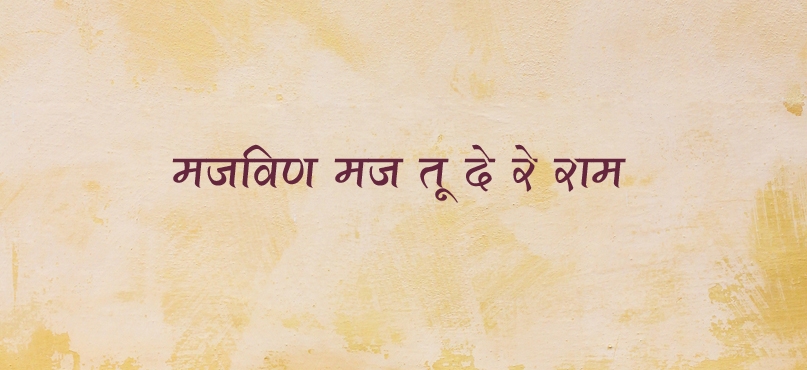 मजविण मज तू दे रे राम